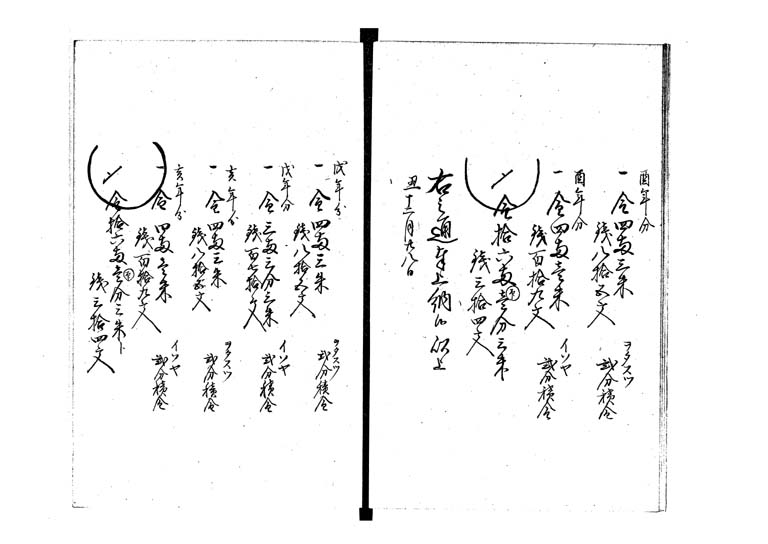 酉年分
一金四両三朱
銭八拾五文
ヲタスツ
弐分積金
酉年分
一金四両壱朱
銭百拾九文
イソヤ
弐分積金
〆金拾六両壱分三朱
銭三拾四文
右之通奉上納候以上
丑十二月九八日
戌年分
一金四両三朱
銭八拾五文
ヲタスツ
弐分積金
戌年分
一金三両三分三朱
イソヤ
弐分積金
亥年分
一金四両三朱
銭八拾五文
ヲタスツ
弐分積金
亥年分
一金四両壱朱
銭百拾九文
イソヤ
弐分積金
〆金拾六両壱分三朱ト
銭三拾四文